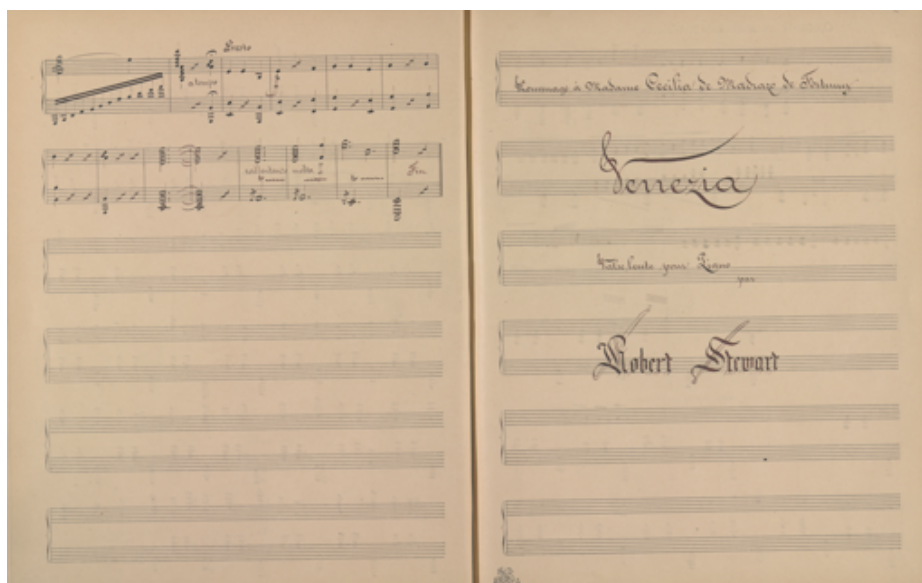 Presto
a tempo
rallentando molto
Fin
Hommage à Madame Cecilia de Madrazo de Fortuny
Venezia
Valse lente pour Piano
par
Robert Stewart